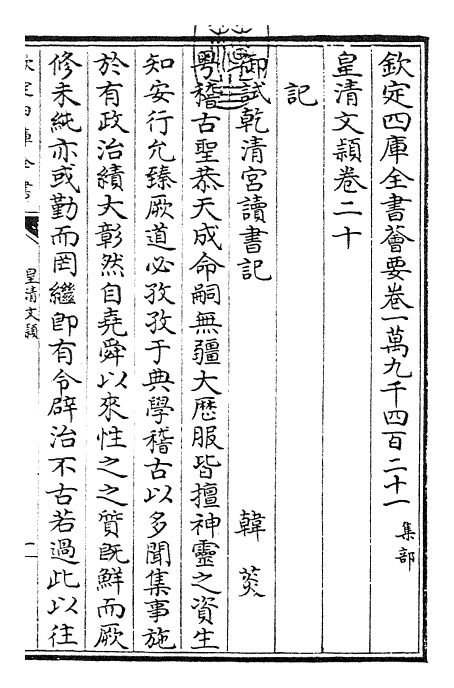 欽定四庫全書薈要卷一萬九千四百二十一 集部
皇清文頴卷二十
記
御試乾清宮讀書記 韓菼
粤稽古聖恭天成命嗣無疆大厯服皆擅神靈之資生
知安行允臻厥道必孜孜于典學稽古以多聞集事施
於有政治績大彰然自堯舜以來性之之質旣鮮而厥
修未純亦或勤而罔繼卽有令辟治不古若過此以往
欽定四庫全書
皇清文頴